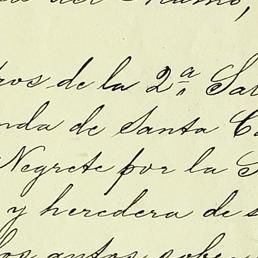 ros de la 2ª Sa
nda de Santa C
Negrete por la S
y heredera de s
los autos sobre